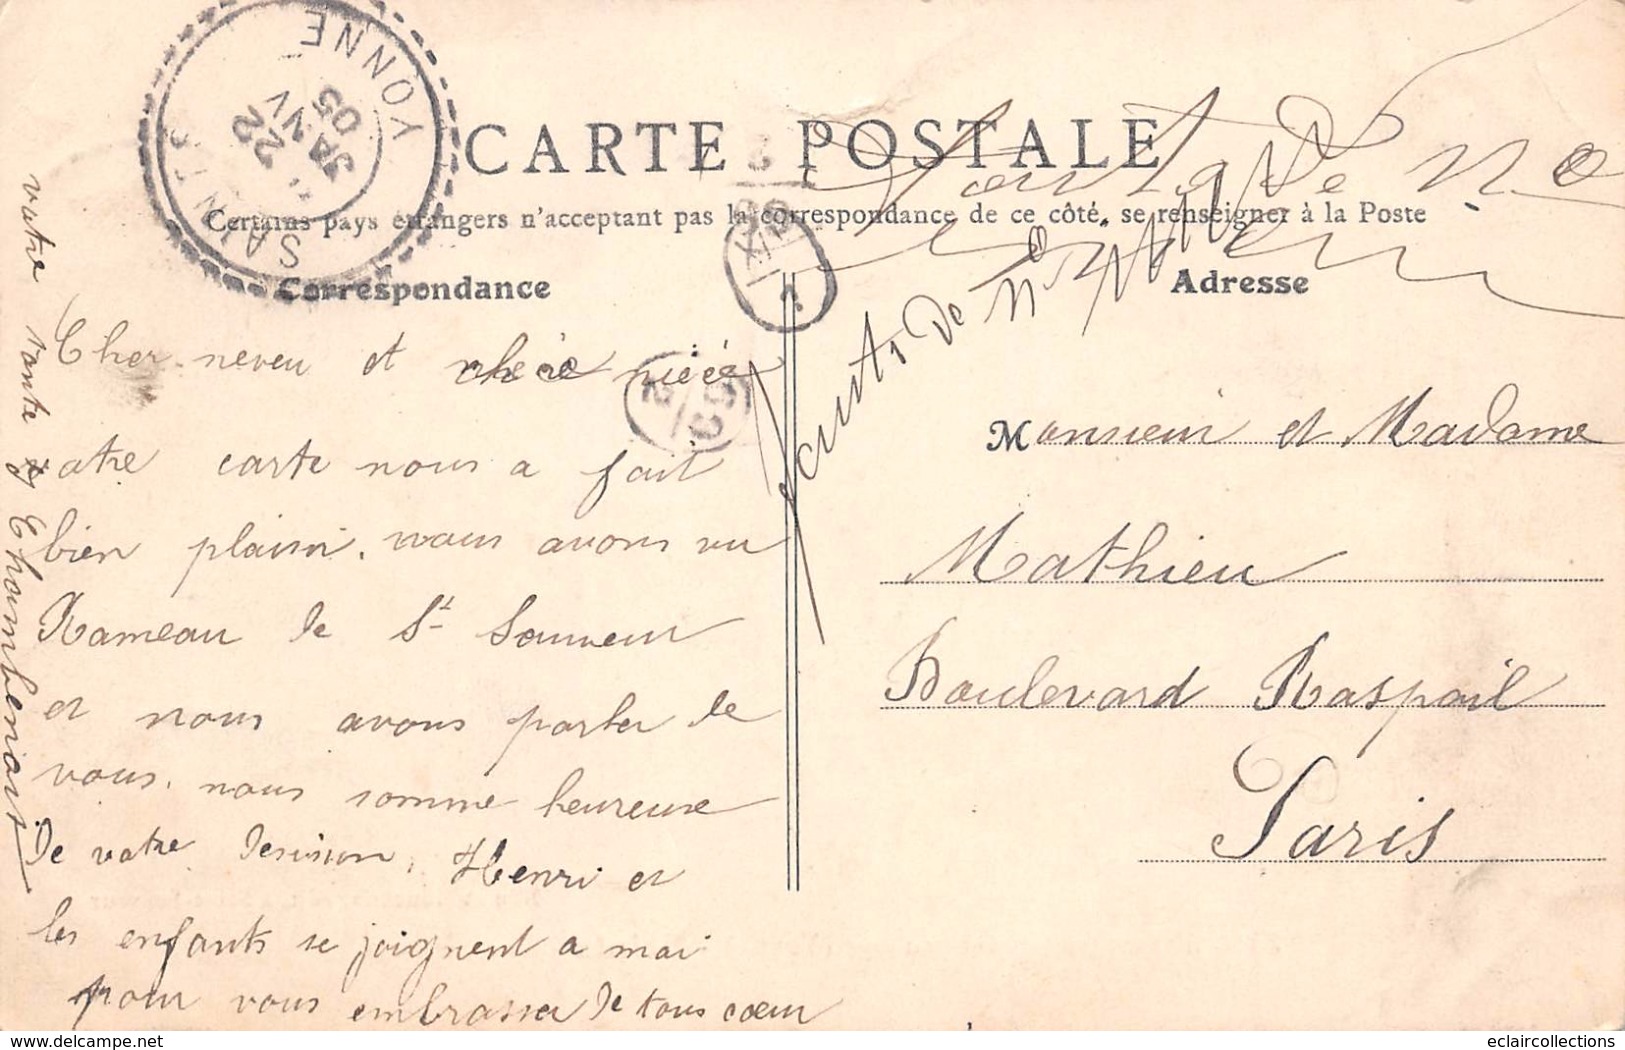 CARTE POSTALE
Certains pays étrangers n'acceptant pas la correspondance de ce côté, se renseigner à la Poste
Correspondance
Adresse
SAINTS
YONNE
22
JANV
05
Cher neveu et chère nièce
votre carte nous a fait
bien plaisir. nous avons vu
Rameau de St Sauveur
et nous avons parler de
vous. nous somme heureuse
de votre desision, Henri et
les enfants se joignent a moi
pour vous embrasser de tous cœur
votre tante
Monsieur et Madame
Mathieu
Boulevard Raspail
Paris
Faute de No
eclaircollections